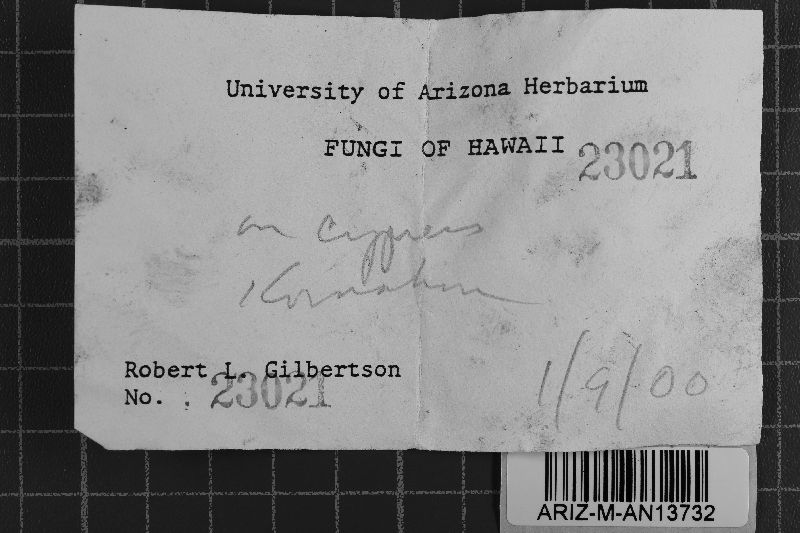 University of Arizona Herbarium
FUNGI OF HAWAII 23021
on cypress
Robert L. Gilbertson
No. 23021
1/9/00
ARIZ-M-AN13732